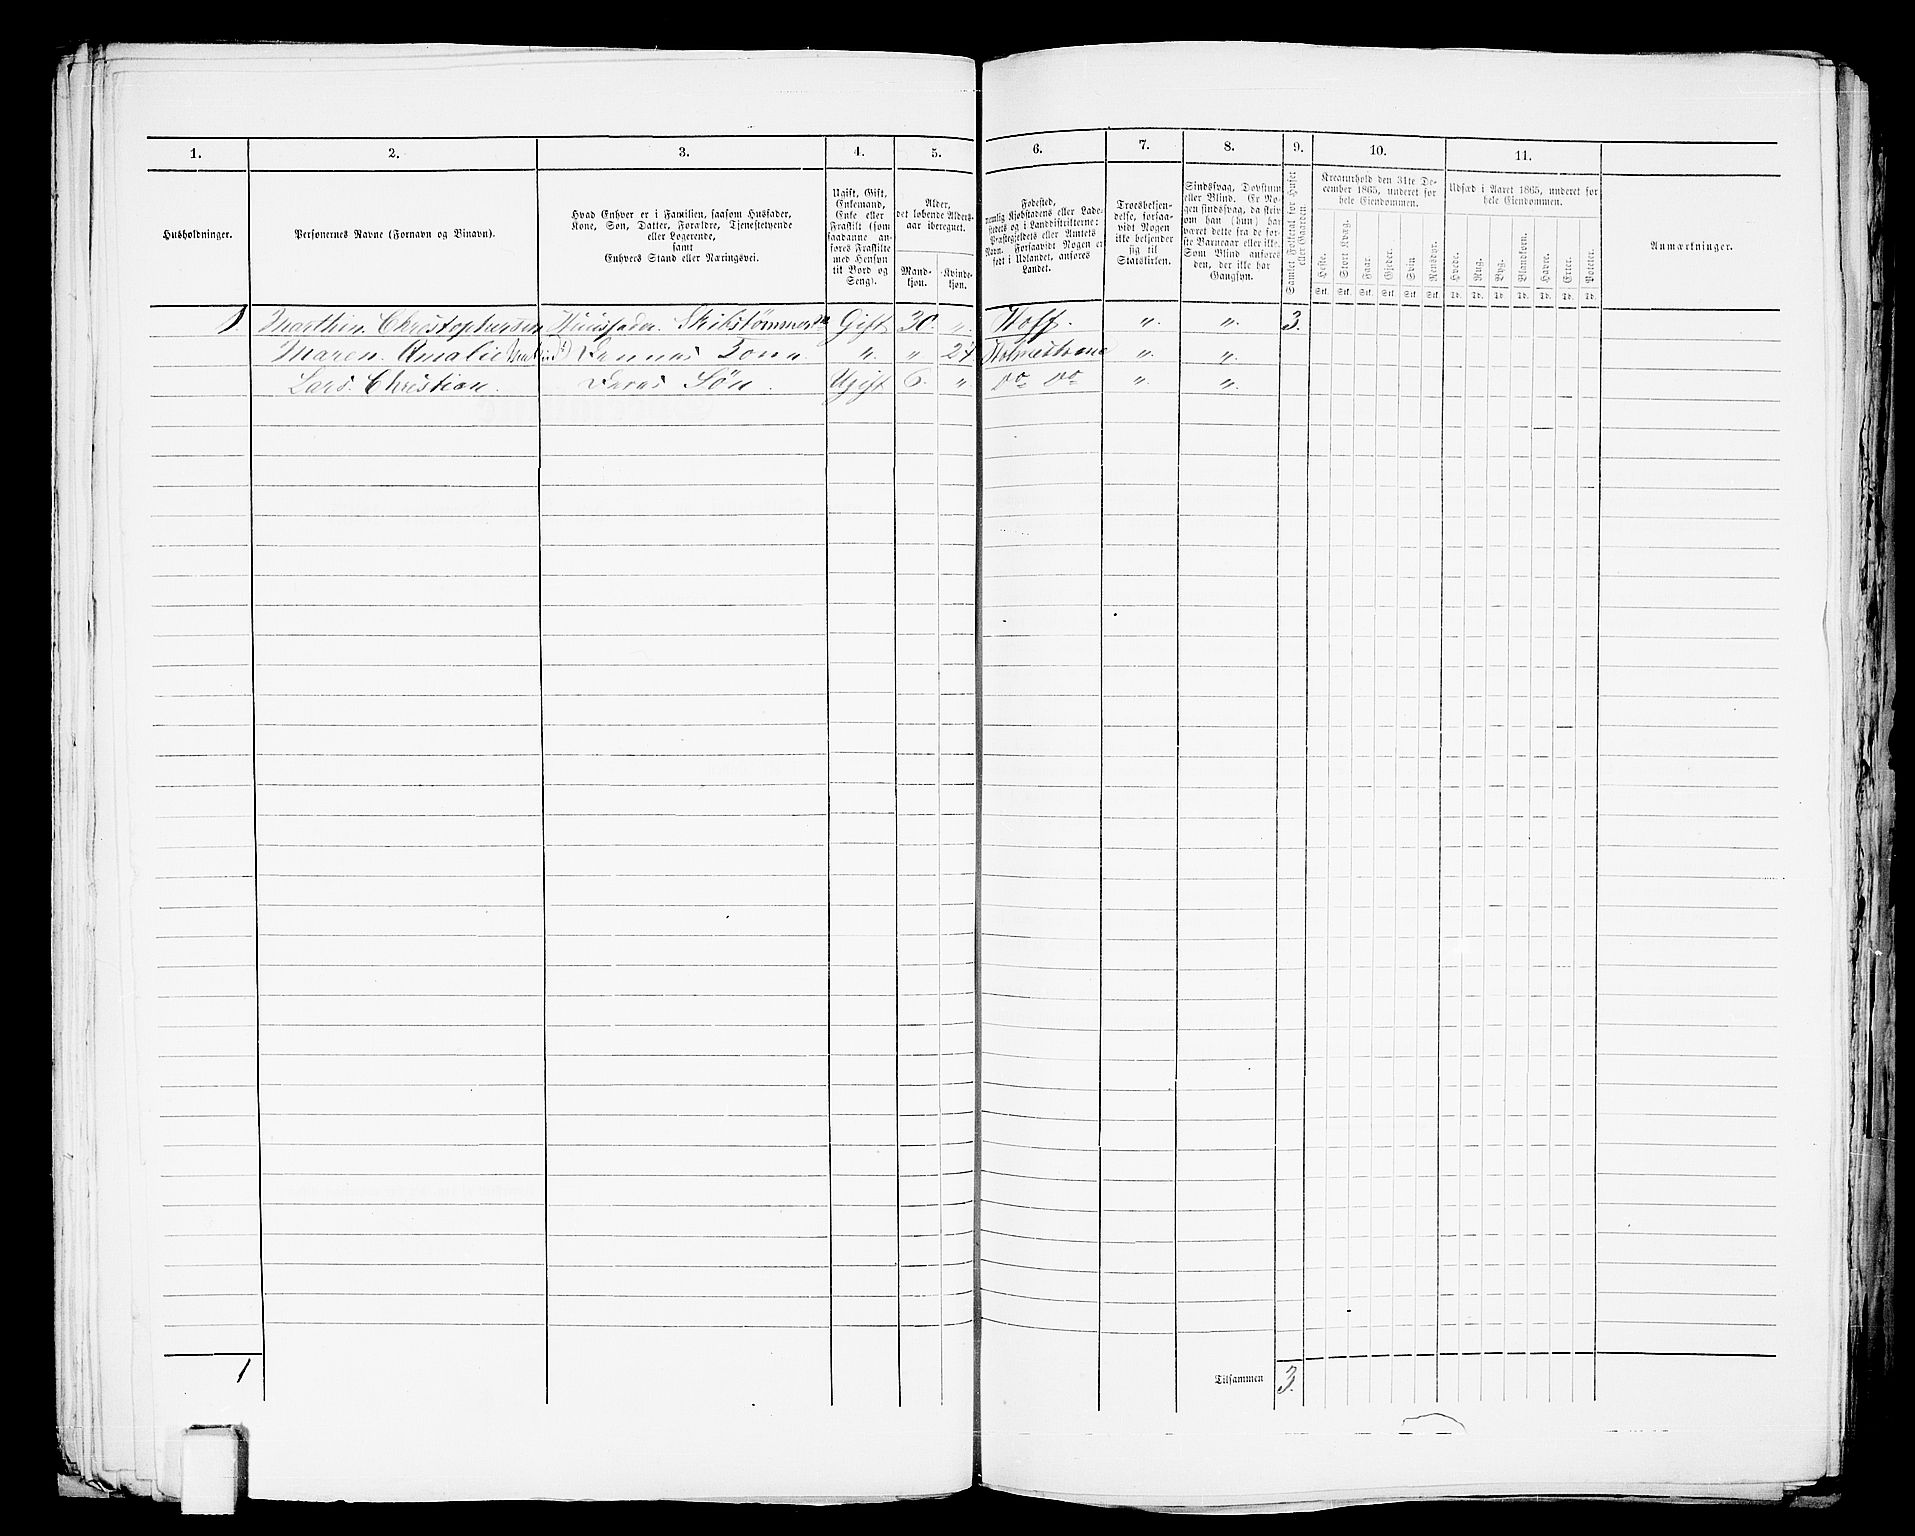 1. 2. 3. 4. 5. 6. 7. 8. 9. 10. 11.
Husholdninger.
Personernes Navne (Fornavn og Binavn).
Hvad Enhver er i Familien, saasom Husfader,
Kone, Søn, Datter, Forældre, Tjenestetyende
eller Logerende,
samt
Enhvers Stand eller Næringsvei.
Ugift, Gift,
Enkemand,
Enke eller
Fraskilt (som
saadanne an-
føres Fraskilte
med Hensyn
til Bord og
Seng).
Alder,
det løbende Alders-
aar iberegnet.
Mand-
kjøn.
Kvinde-
kjøn.
Fødested,
nemlig Kjøbstadens eller Lade-
stedets og i Landdistrikterne:
Præstegjeldets eller Amtets
Navn. Forsaavidt Nogen er
født i Udlandet, anføres
Landet.
Troesbekjen-
delse, forsaa-
vidt Nogen
ikke bekjender
sig til
Statskirken.
Sindssvag, Døvstum
eller Blind. Er No-
gen sindssvag, da skriv
om han (hun) har
været dette fra de før-
ste Barneaar eller ikke.
Som Blind anføres
den, der ikke har
Gangsyn.
Samlet Folketal for Huset
eller Gaarden
Kreaturhold den 31te De-
cember 1865, underet for
hele Eiendommen.
Heste. Stort Kvæg. Faar. Gjeder. Svin. Rensdyr.
Stk. Stk. Stk. Stk. Stk. Stk.
Udsæd i Aaret 1865, underet for
hele Eiendommen.
Hvede. Rug. Byg. Blandkorn. Havre. Erter. Poteter.
Td. Td. Td. Td. Td. Td. Td.
Anmærkninger.
1 Marthin Christophersen Huusfader. Skibstømmerm Gift 30. „ Hoff. „ „ 3.
Maren Amalie Kone „ „ 27 Holmestrand „ „
Lars Christian Søn Ugift 6. „ Do Do „ „
1 Tilsammen 3.